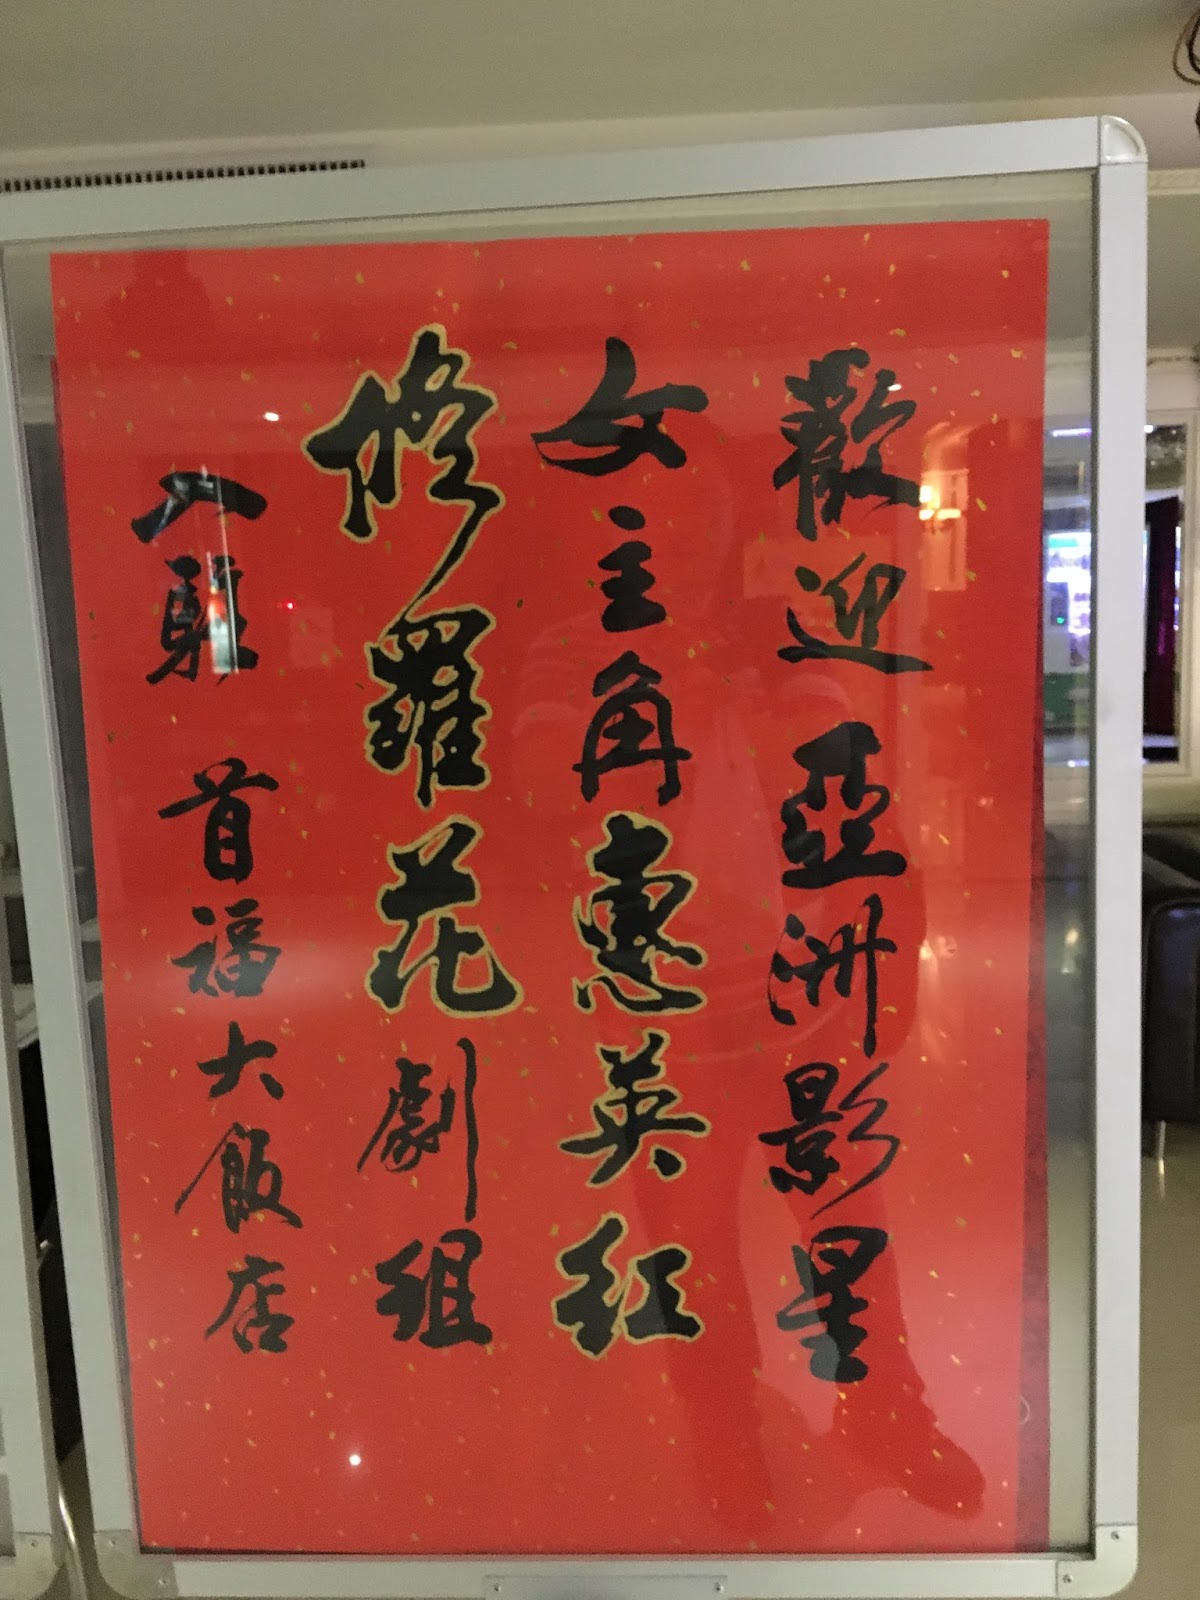 歡迎亞洲影星
女主角惠英紅
修羅花劇組
入駐 首福大飯店